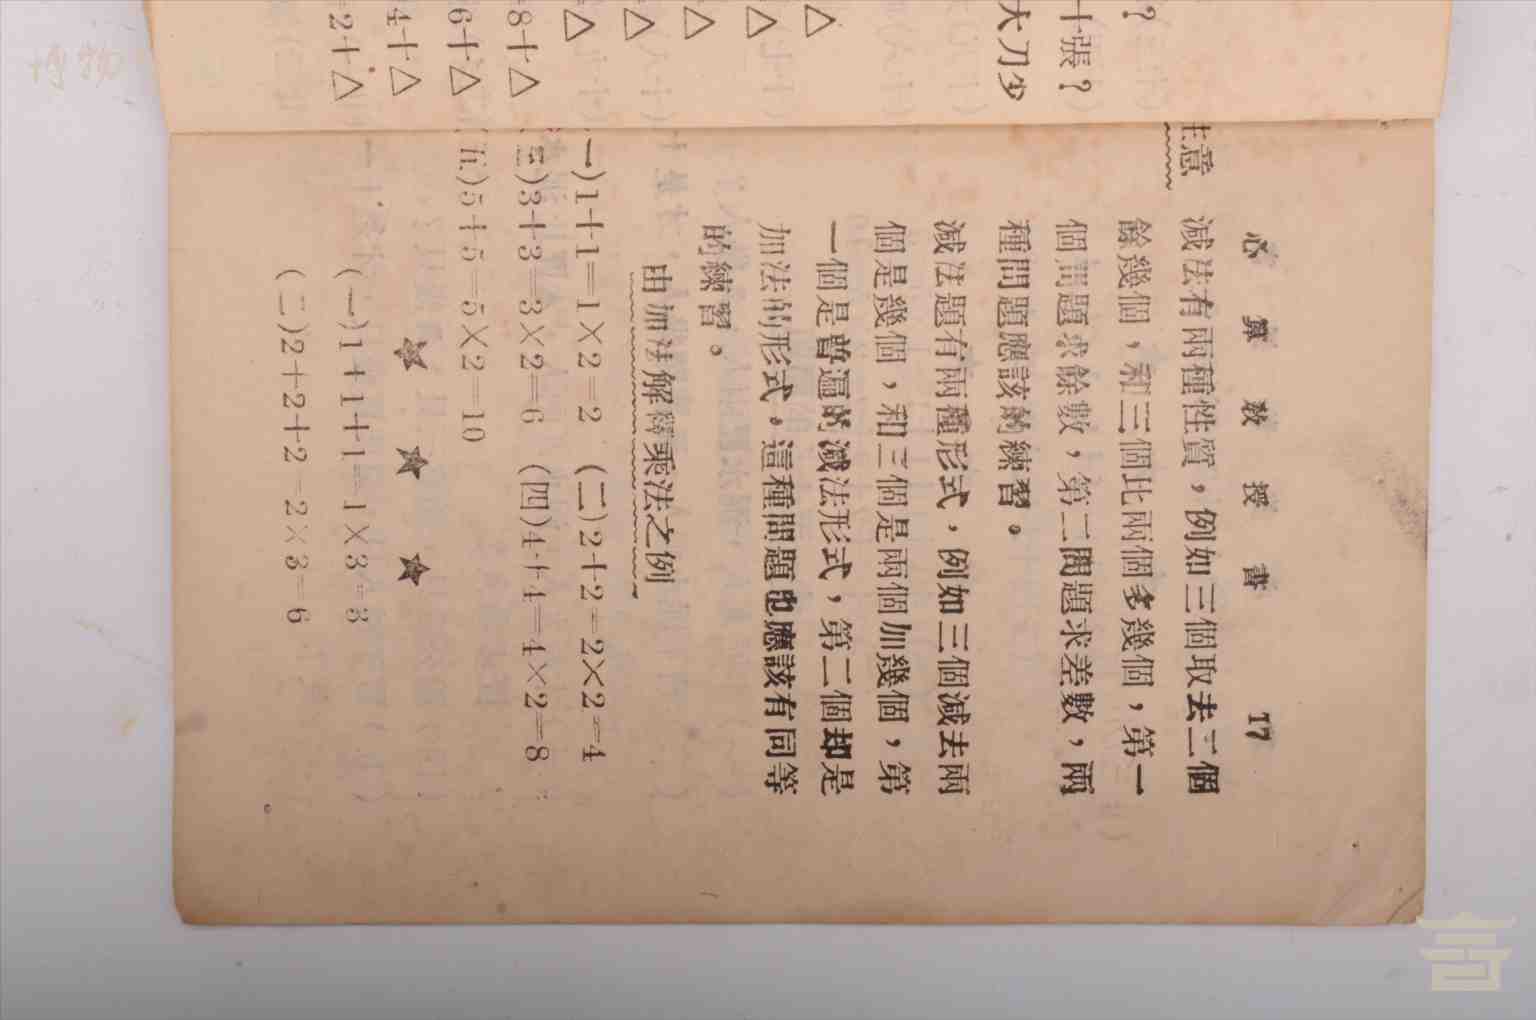 心算教授書 17
注意 減法有兩種性質，例如三個取去二個
餘幾個，和三個比兩個多幾個，第一
個問題求餘數，第二問題求差數，兩
種問題應該的練習。
減法題有兩種形式，例如三個減去兩
個是幾個，和三個是兩個加幾個，第
一個是普遍的減法形式，第二個却是
加法的形式，這種問題也應該有同等
的練習。
由加法解釋乘法之例
(一)1+1=1×2=2 (二)2+2=2×2=4
(三)3+3=3×2=6 (四)4+4=4×2=8
(五)5+5=5×2=10
★ ★ ★
(一)1+1+1=1×3=3
(二)2+2+2=2×3=6
?
十張?
大刀少
△
△
△
△
△
8+△
6+△
4+△
2+△
博物